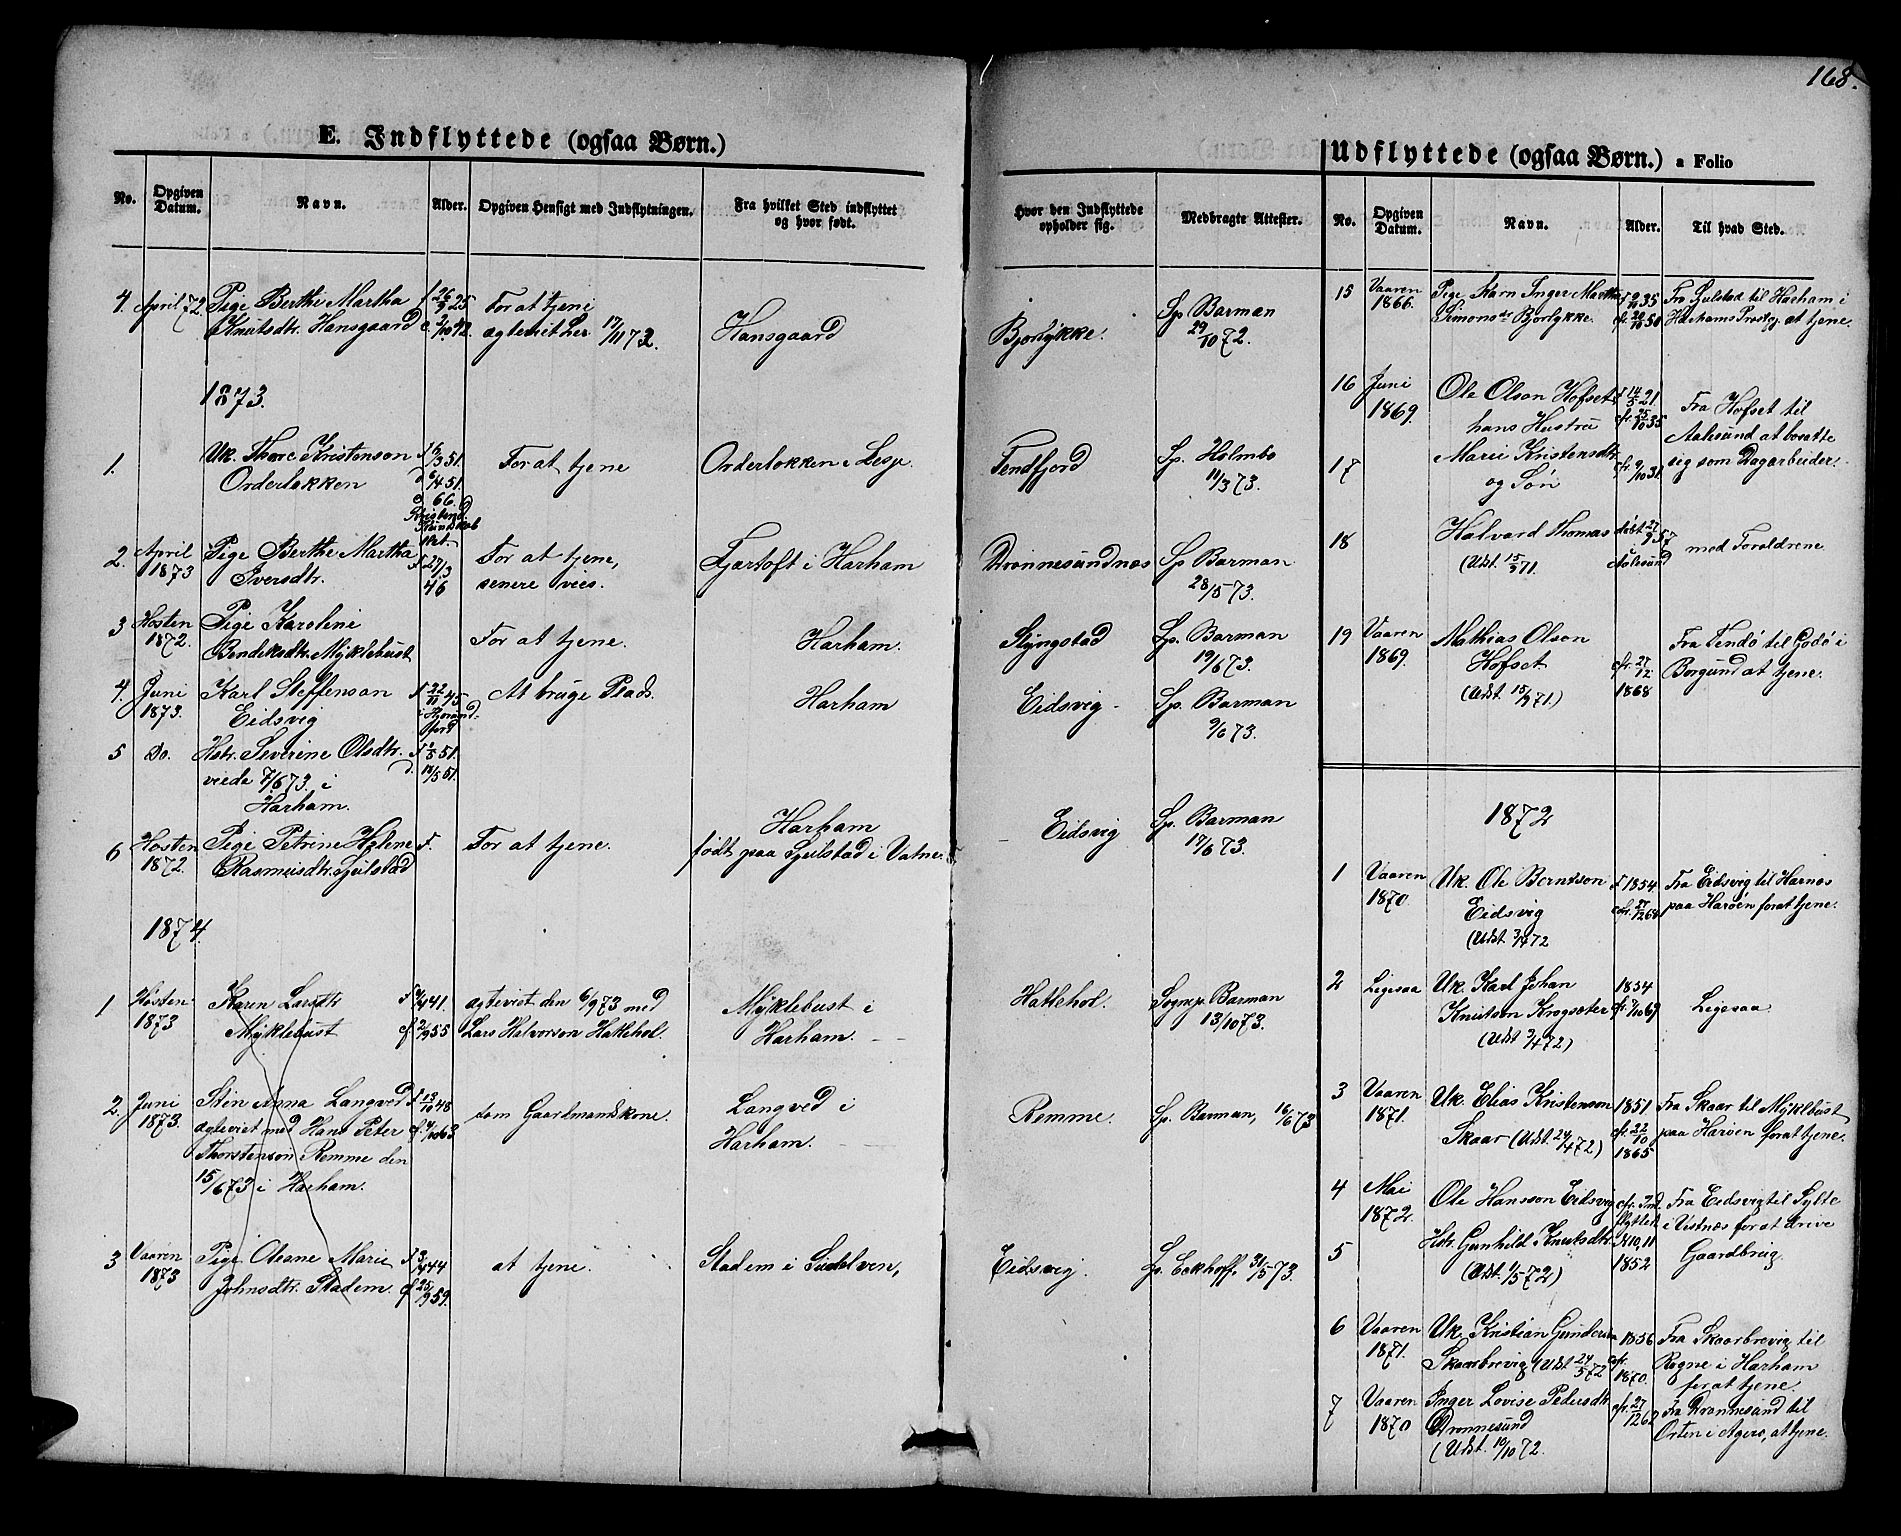 168.
E. Indflyttede (ogsaa Børn.)
No. Opgiven Datum. Navn. Alder. Opgiven Hensigt med Indflytningen. Fra hvilket Sted indflyttet og hvor født. Hvor den Indflyttede opholder sig. Medbragte Attester.
4. April 72. Pige Berthe Martha f 26/9 25 For at tjene Sp. Barman
Knutsdtr. Hansgaard c. 2/10 42. ægteviet her 17/11 72. Hansgaard Bjørlykke. 29/10 72.
1873.
1. Uk. Thore Kristenson f 16/3 51. For at tjene Orderløkken i Lesje. Fendfjord Sp. Holmbo
Orderløkken d 6/4 51. 11/3 73.
c 66.
2. April Pige Berthe Martha For at tjene, Fjørtoft i Harham Drønnesundnæs Sp Barman
1873 Iversdtr. f 27/3 46 senere vies. 28/5 73.
3 Høsten Pige Karoline For at tjene. Harham. Slyngstad Sp. Barman
1872. Bendiksdtr. Myklebust 19/6 73.
4. Juni Karl Steffenson f 22/11 45. At bruge Plads. Harham Eidsvig Sp. Barman
1873. Eidsvig 9/6 73.
5 Do. Hstr. Severine Olsdtr. f 1/5 51.
viede 7/6 73. i d. 18/5 51.
Harham.
6 Høsten Pige Petrine Helene f. For at tjene. Harham Eidsvig Sp. Barman
1872. Rasmusdtr. Gjelstad født paa Gjelstad i Vatne 17/6 73.
1874.
1 Høsten Karen Larsdtr f 4/4 41. ægteviet den 6/9 73 med Myklebust i Hatlehol. Sognp. Barman
1873 Myklebust cf 2/9 55 Lars Halvorson Hatlehol. Harham. 13/10 73.
2. Juni Stin Anna Langved f 13/10 48 som Gaardmandskone. Langved i Remme. Sp. Barman, 16/6 73
1873. ægteviet med Hans Peter cf. 4/10 63. Harham.
Thorstenson Remme den
15/6 73 i Harham.
3 Vaaren Pige Oleane Marie f 3/4 44 at tjene. Stadem i Søekelven, Eidsvig. Sp. Eckhoff, 31/5 73.
1873 Johnsdtr. Stadem. cf 25/9 59.
Udflyttede (ogsaa Børn.) a Folio
No. Opgiven Datum. Navn. Alder. Til hvad Sted.
15 Vaaren Pige Karn Inger Martha f 9/10 35 Fra Gjelstad til Harham i
1866. Simonsdr Bjørlykke. cfr. 20/10 50 Harhams Præstegj. at tjene.
16 Juni Ole Olson Hofset f 14/5 21. Fra Hofset til
1869. hans Hustru cfr. 25/10 35 Aalesund at bosætte
17 Marie Kristensdtr. cfr. 9/10 31. sig som Dagarbeider.
og Søn
18 Halvard Thomas døbt 27/9 57 med Forældrene.
(Udst. 15/3 71. Aalesund
19 Vaaren Mathias Olson Fra Tendø til Godø i
1869. Hofset cfr. 27/12 Borgund at tjene.
(Udst. 15/3 71.) 1868
1872
1 Vaaren Uk. Ole Berntson f 1854 Fra Eidsvig til Harnæs
1870. Eidsvig cfr. 27/12 68. paa Harøen for at tjene.
(Udst. 3/4 72
2 Ligesaa Uk. Karl Johan 1854 Ligesaa.
Knutson Krogsæter cfr. 7/10 69
(Udst 3/4 72)
3 Vaaren Uk. Elias Kristenson 1851 Fra Skaar til Myklebust
1871. Skaar (Udst. 24/4 72) cfr. 22/10 1865 paa Harøen for at tjene.
4 Mai Ole Hansson Eidsvig cfr. Ind- Fra Eidsvig til Sylte
1872. flyttet i Vestnæs for at drive
5 Hstr. Gunhild Knutsdtr. N 10, 11 Gaardbrug.
(Udst. 1/5 72) 1852
6 Vaaren Uk. Kristian Gunderson 1856 Fra Skaarbrevig til
1871. Skaarbrevig (Udst 24/5 72 cfr. 1870. Rogne i Harham
for at tjene.
7 Vaaren Inger Lovise Pedersdtr. cfr. 27/12 62 Fra Drønnesund til
1870 Drønnesund Orten i Agerø, at tjene.
(Udst. 10/10 72.